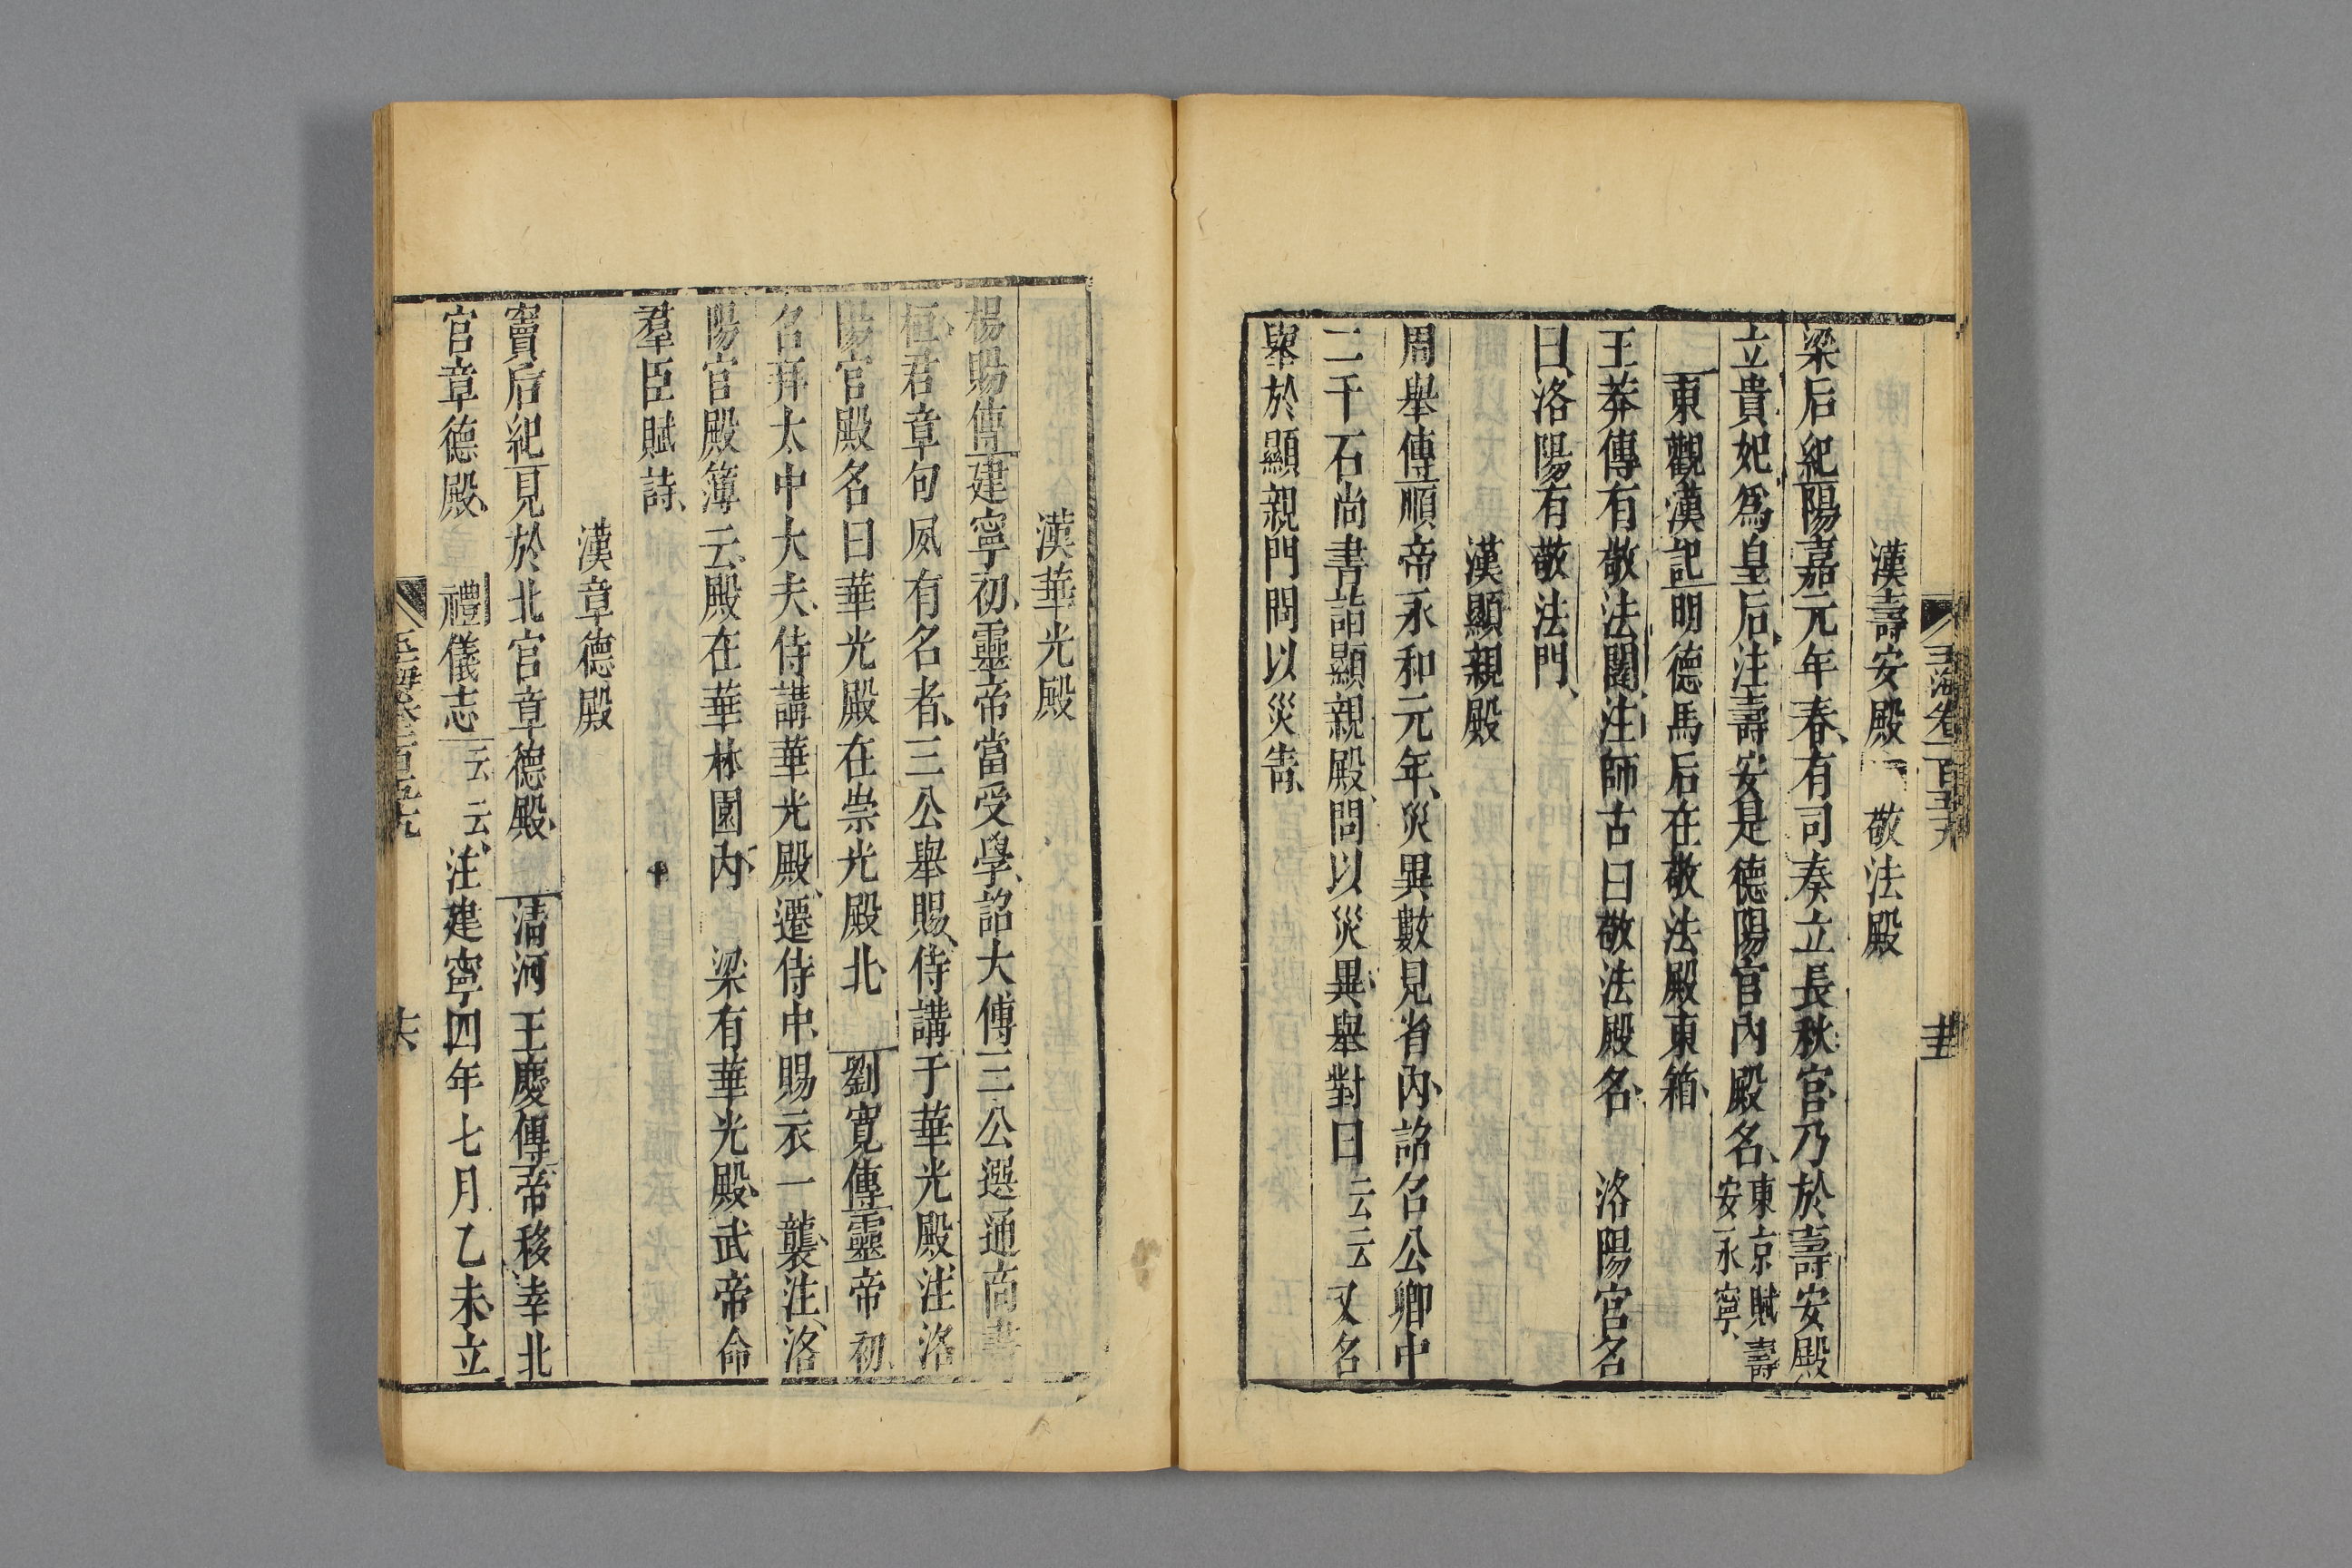 玉海卷一百五十九
漢壽安殿 敬法殿
梁后紀陽嘉元年春有司奏立長秋宮乃於壽安殿
立貴妃爲皇后注壽安是德陽宮內殿名東京賦壽安永寧
東觀漢記明德馬后在敬法殿東箱
王莽傳有敬法闥注師古曰敬法殿名 洛陽宮名
曰洛陽有敬法門
漢顯親殿
周舉傳順帝永和元年災異數見省內詔召公卿中
二千石尚書詣顯親殿問以災異舉對曰云云又召
舉於顯親門問以災眚
漢華光殿
楊賜傳建寧初靈帝當受學詔大傅三公選通尚書
桓君章句夙有名者三公舉賜侍講于華光殿注洛
陽宮殿名曰華光殿在崇光殿北 劉寬傳靈帝初
召拜太中大夫侍講華光殿遷侍中賜衣一襲注洛
陽宮殿簿云殿在華林園內 梁有華光殿武帝命
羣臣賦詩
漢章德殿
竇后紀見於北宮章德殿 淸河王慶傳帝移幸北
宮章德殿 禮儀志云云注建寧四年七月乙未立